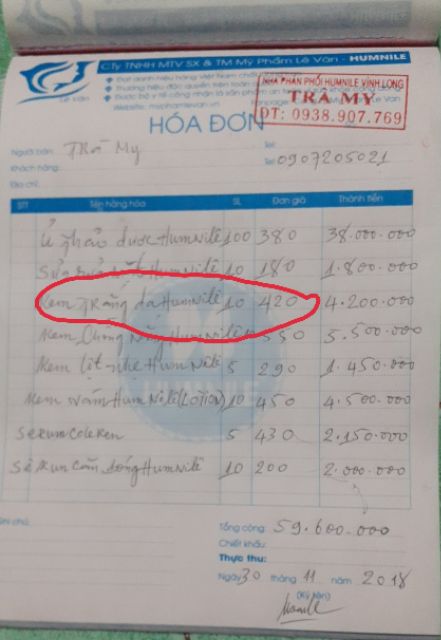 CTy TNHH MTV SX & TM Mỹ Phẩm Lê Vân - HUMNILE
Đạt danh hiệu hàng Việt Nam chất
Thương hiệu độc quyền trên toàn
Được bộ y tế công nhận là sản phẩm an
Website: myphamlevan.vn
Fanpage:
Lê Vân
NHÀ PHÂN PHỐI HUMNILE VĨNH LONG
TRÀ MY
ĐT: 0938.907.769
HÓA ĐƠN
Người bán: Trà My Tel:
Khách hàng: Tel: 0907205021
Địa chỉ:
STT Tên hàng hóa SL Đơn giá Thành tiền
Ủ thảo dược HumNile 100 380 38.000.000
Sữa HumNile 10 180 1.800.000
Kem Trắng da HumNile 10 420 4.200.000
Kem Chống Nắng HumNile 550 5.500.000
Kem lót nhẹ HumNile 5 290 1.450.000
Kem HumNile (LOTION) 10 450 4.500.000
Serum Coleken 5 430 2.150.000
HumNile 10 200 2.000.000
HUMNILE
Ghi chú:
Tổng cộng: 59.600.000
Chiết khấu:
Thực thu:
Ngày 30 tháng 11 năm 2018
(Ký tên)